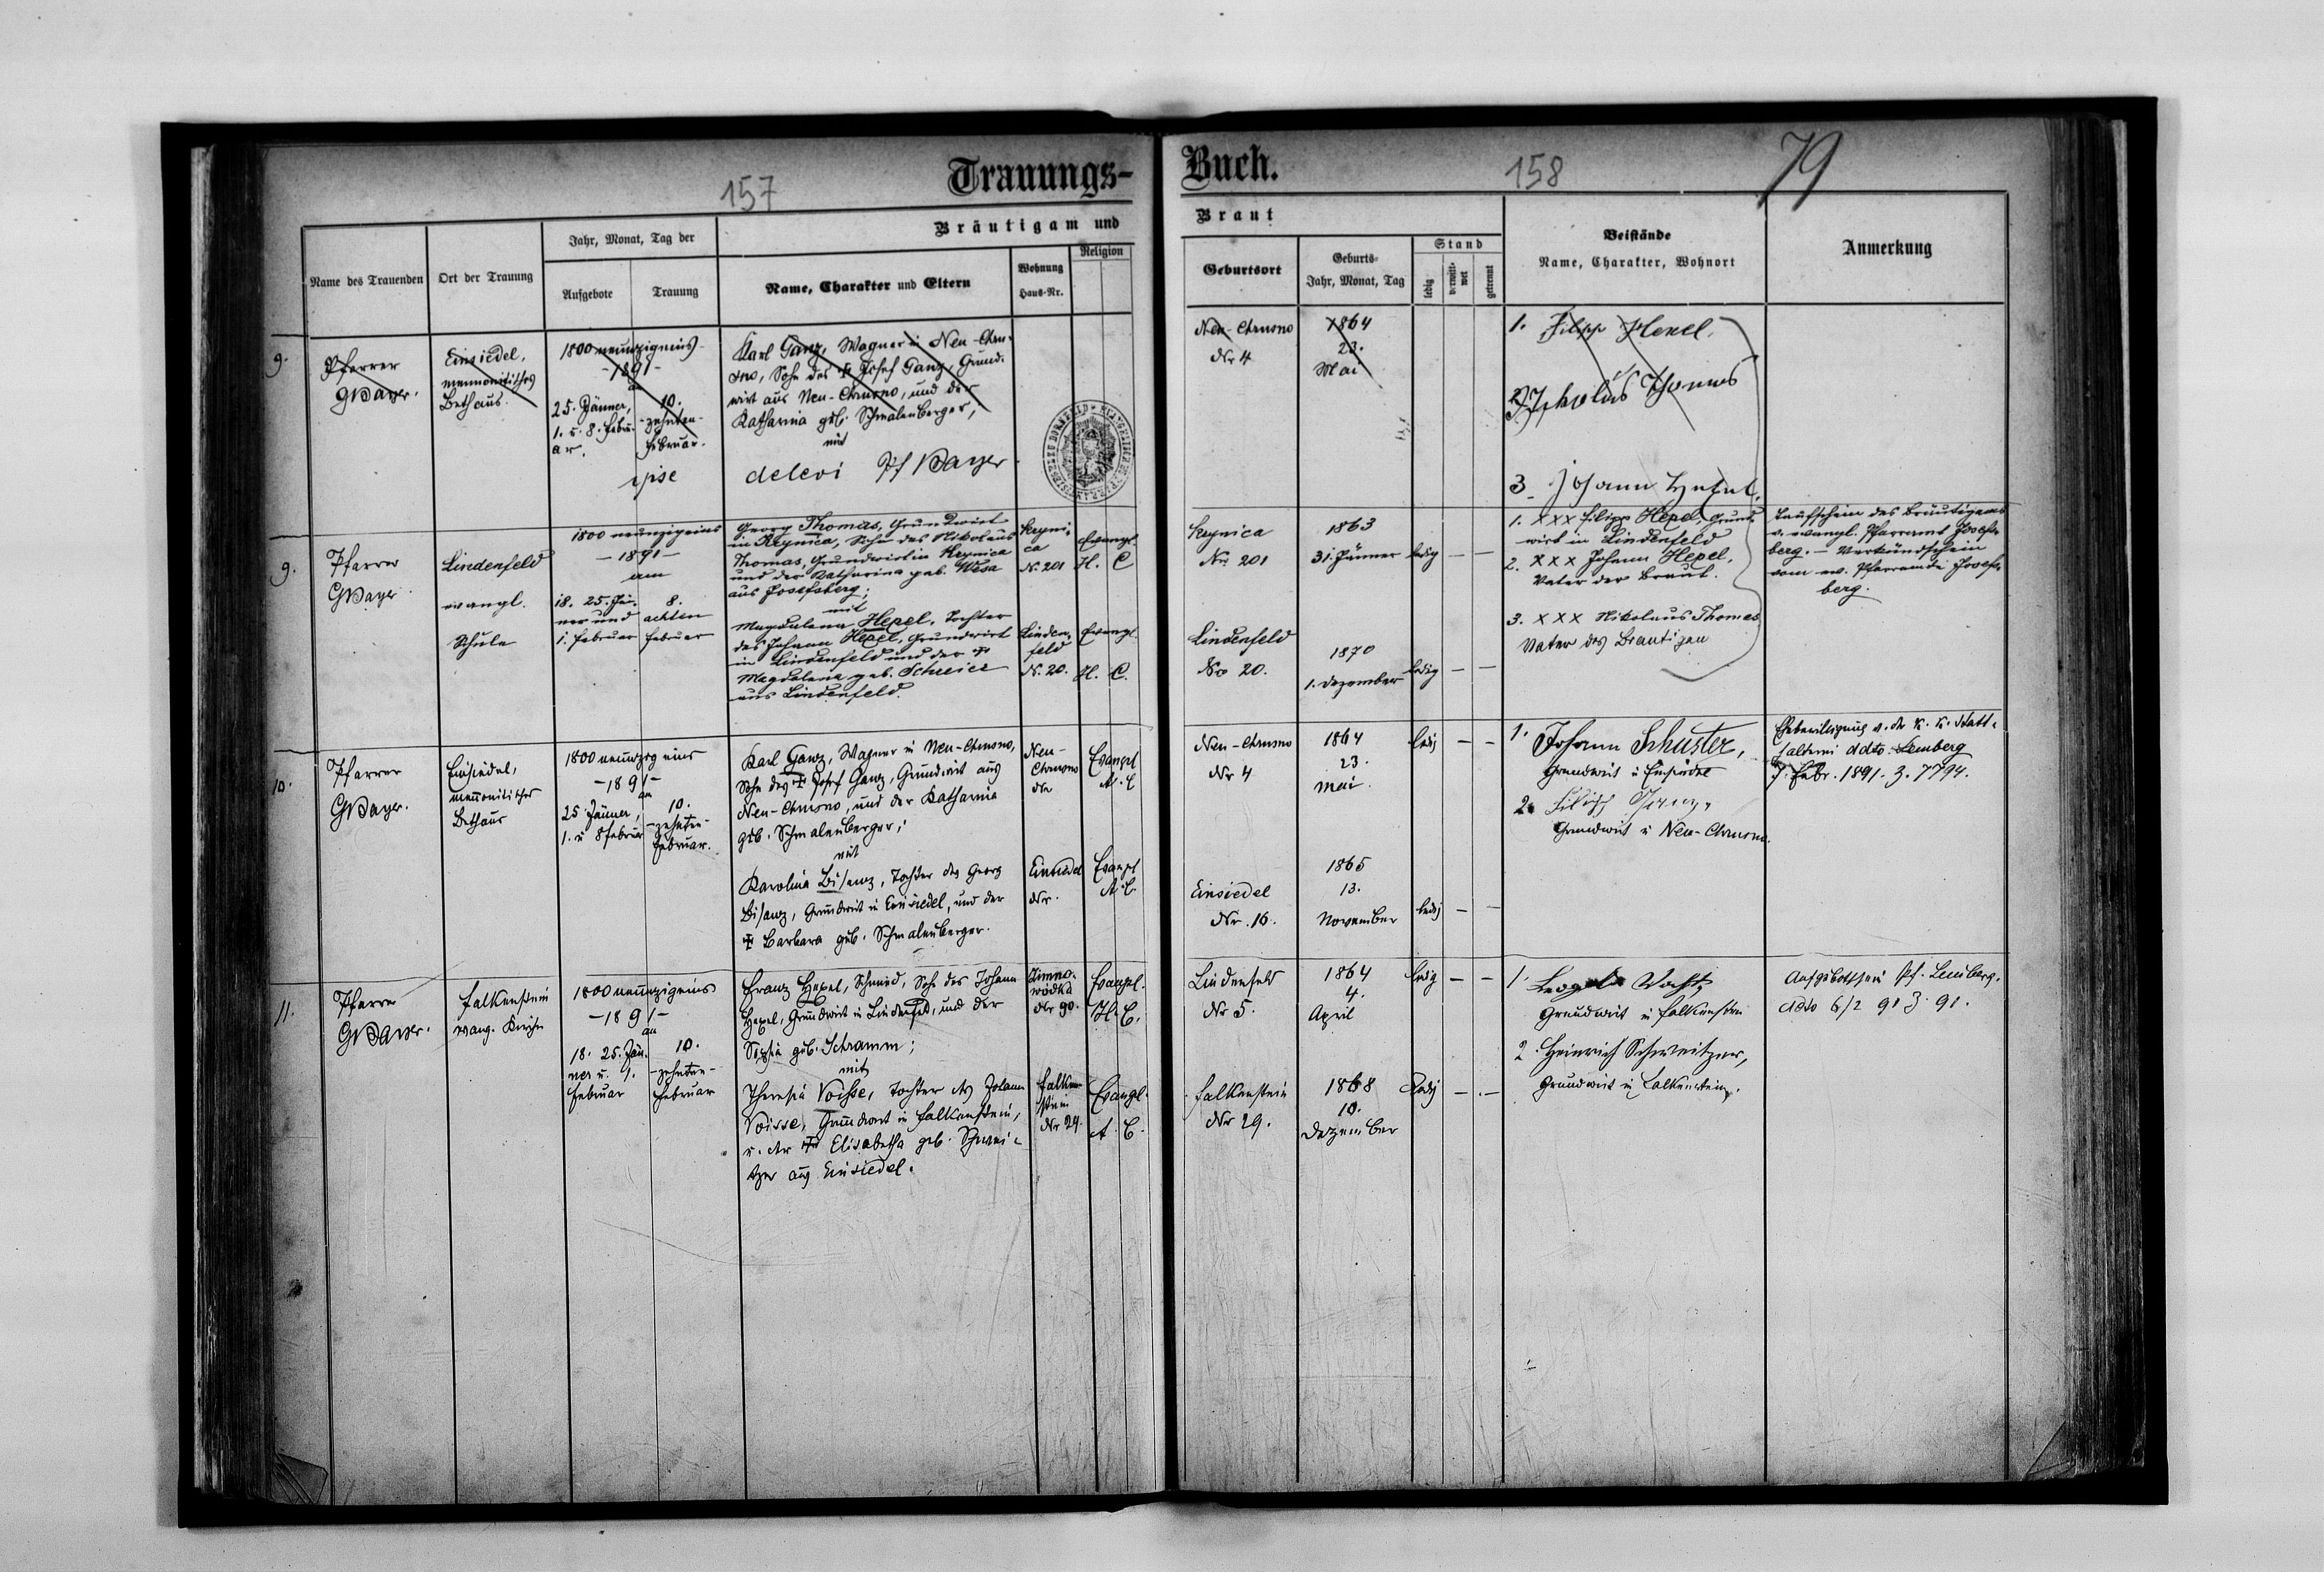 Trauungs-
157
Bräutigam und
Name des Trauenden
Ort der Trauung
Jahr, Monat, Tag der
Aufgebote
Trauung
Name, Charakter und Eltern
Wohnung
Haus-Nr.
Religion
9.
Pfarrer
GBayer.
Einsiedel,
mennonitisches
Bethaus.
1800 neunzigeins
-1891-
am
25. Jänner,
1. u. 8. Febru-
ar.
10.
-zehnten-
Februar.
ipse
Karl Ganz, Wagner in Neu-Chru-
sno, Sohn des ✝ Josef Ganz, Grund-
wirt aus Neu-Chrusno, und der
Katharina geb. Schmalenberger,
mit
delevi Pf Bayer
9.
Pfarrer
GBayer
Lindenfeld
evangl.
Schule
1800 neunzigeins
-1891-
am
18. 25. Jän-
ner und
1. Februar
8.
achten
Februar
Georg Thomas, Grundwirt
in Krynica, Sohn des Nikolaus
Thomas, Grundwirt in Krynica
und der Katharina geb. Wesa
aus Josefsberg;
mit
Magdalena Hexel, Tochter
des Johann Hexel, Grundwirt
in Lindenfeld und der ✝
Magdalena geb. Schreier
aus Lindenfeld.
Kryni-
ca
N. 201
Evangl.
H. C
Linden-
feld
N. 20.
Evangl.
H. C.
10.
Pfarrer
GBayer.
Einsiedel,
mennonitisches
Bethaus
1800 neunzig eins
-1891-
am
25 Jänner,
1. u 8 Februar
10.
-zehnten-
Februar.
Karl Ganz, Wagner in Neu-Chrusno,
Sohn des ✝ Josef Ganz, Grundwirt aus
Neu-Chrusno, und der Katharina
geb. Schmalenberger;
mit
Karolina Bisanz, Tochter des Georg
Bisanz, Grundwirt in Einsiedel, und der
✝ Barbara geb. Schmalenberger.
Neu-
Chrusno
Nr
Evangl
A. C
Einsiedel
Nr.
Evangl
A. C
11.
Pfarrer
GBayer.
Falkenstein
evang. Kirche
1800 neunzigeins
-1891-
am
18. 25. Jän-
ner u. 1.
Februar
10.
-zehnten-
Februar
Franz Hexel, Schmied, Sohn des Johann
Hexel, Grundwirt in Lindenfeld, und der
Sophia geb. Schramm;
mit
Theresia Voisse, Tochter des Johann
Voisse, Grundwirt in Falkenstein,
u. der ✝ Elisabetha geb. Schwei-
tzer aus Einsiedel.
Zimno-
wodka
Nr 90.
Evangl.
H. C.
Falken-
stein
Nr 29.
Evangl.
A. C.
Buch.
158
79
Braut
Geburtsort
Geburts-
Jahr, Monat, Tag
Stand
ledig
verwitt-
wet
getrennt
Beistände
Name, Charakter, Wohnort
Anmerkung
Neu-Chrusno
Nr 4
1864
23.
Mai
1. Filipp Hexel.
2 Nikolaus Thomas
3. Johann Hexel.
Krynica
No. 201
1863
31. Jänner
ledig
1. xxx Filipp Hexel, Grund-
wirt in Lindenfeld
2. xxx Johann Hexel,
Vater der Braut.
3. xxx Nikolaus Thomas
Vater des Bräutigam
Taufschein des Bräutigams
v. evangl. Pfarramt Josefs-
berg. - Verkündschein
vom ev. Pfarramte Josefs-
berg.
Lindenfeld
Nro 20.
1870
1. Dezember
ledig
Neu-Chrusno
Nr 4
1864
23.
Mai
ledig
1. Johann Schuster,
Grundwirt in Einsiedel
2. Filipp Ganz,
Grundwirt in Neu-Chrusno.
Ehebewilligung v. der k. k. Statt-
halterei ddto. Lemberg
7. Febr. 1891. Z. 7794.
Einsiedel
Nr. 16.
1865
13.
November
ledig
Lindenfeld
Nr 5.
1864
4.
April
ledig
1.
Grundwirt in Falkenstein
2. Heinrich Schweitzer,
Grundwirt in Falkenstein.
Aufgebotschein Pf. Lemberg.
ddto 6/2 91 Z. 91.
Falkenstein
Nr 29.
1868
10.
Dezember
ledig